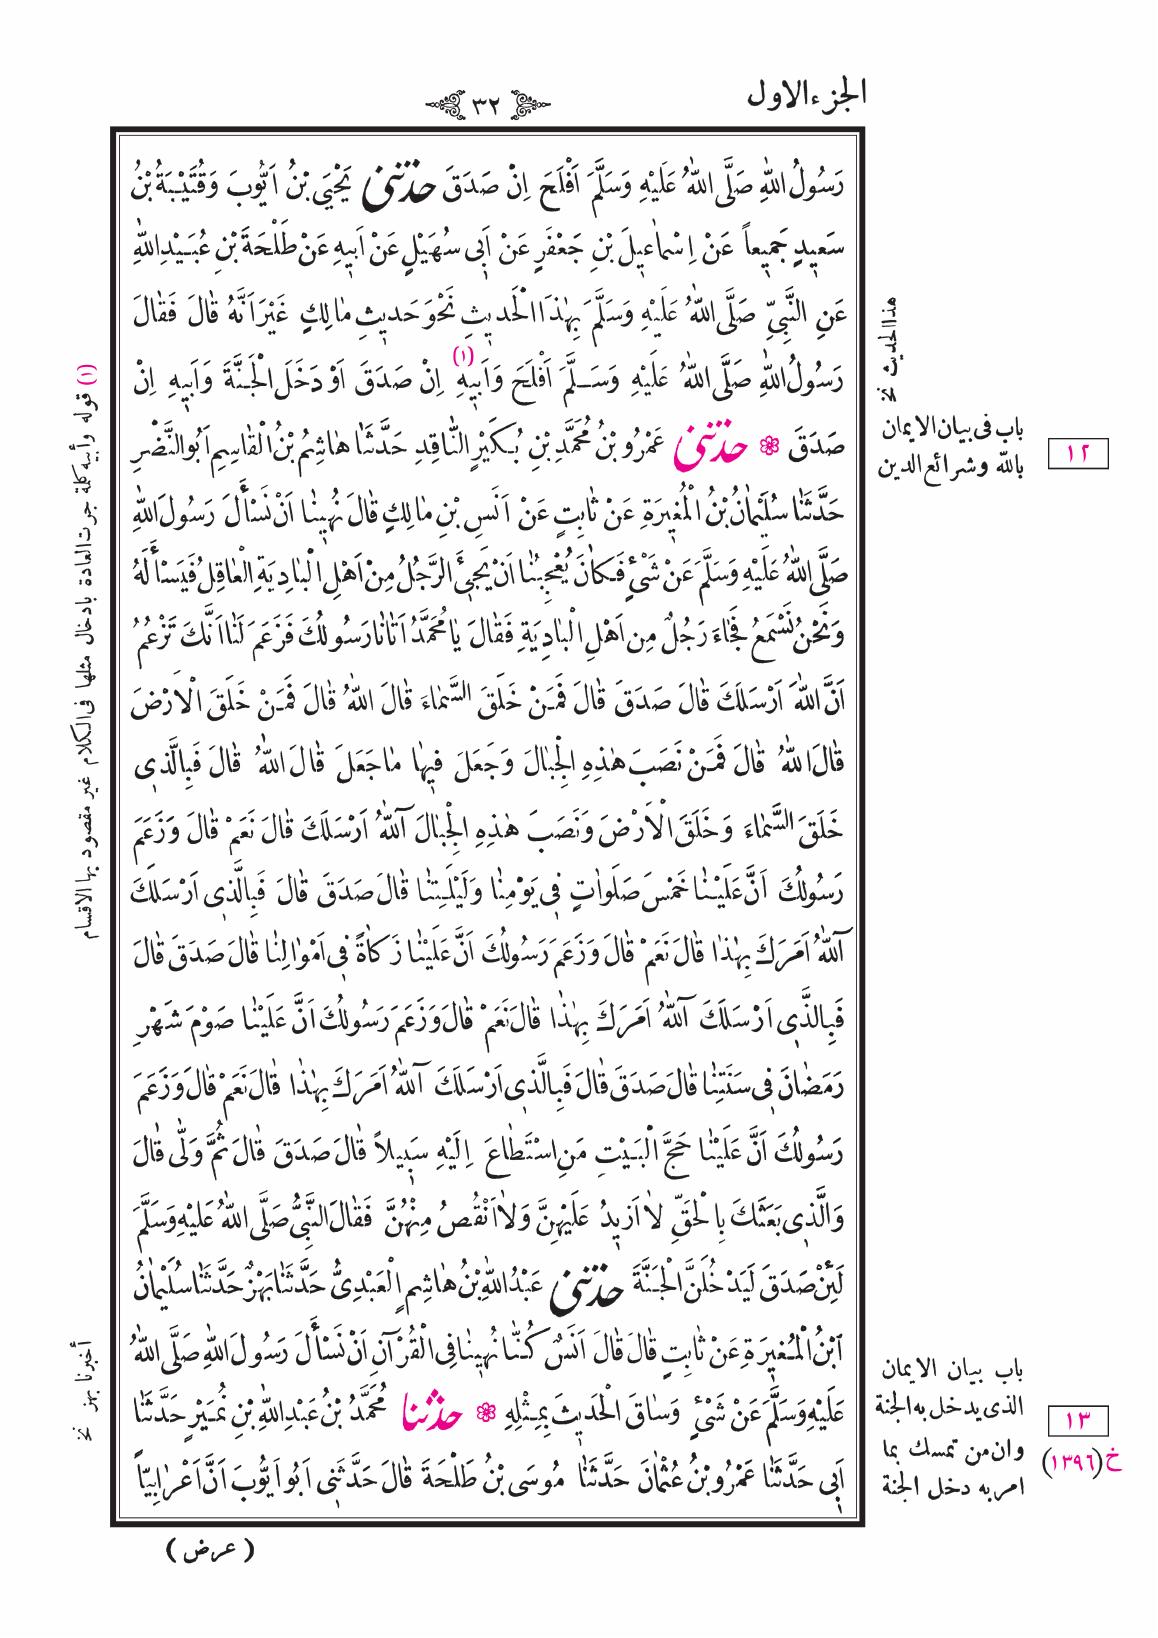 الجزء الاول
٣٢
رَسُولُ اللّٰهِ صَلَّى اللّٰهُ عَلَيْهِ وَسَلَّمَ اَفْلَحَ اِنْ صَدَقَ حَدَّثَنِى يَحْيَى بْنُ اَيُّوبَ وَقُتَيْبَةُ بْنُ
سَعِيدٍ جَمِيعاً عَنْ اِسْمَاعِيلَ بْنِ جَعْفَرٍ عَنْ اَبِى سُهَيْلٍ عَنْ اَبِيهِ عَنْ طَلْحَةَ بْنِ عُبَيْدِ اللّٰهِ
عَنِ النَّبِىِّ صَلَّى اللّٰهُ عَلَيْهِ وَسَلَّمَ بِهٰذَا الْحَدِيثِ نَحْوَ حَدِيثِ مَالِكٍ غَيْرَ اَنَّهُ قَالَ فَقَالَ
رَسُولُ اللّٰهِ صَلَّى اللّٰهُ عَلَيْهِ وَسَلَّمَ اَفْلَحَ وَاَبِيهِ (١) اِنْ صَدَقَ اَوْ دَخَلَ الْجَنَّةَ وَاَبِيهِ اِنْ
صَدَقَ ❁ حَدَّثَنِى عَمْرُو بْنُ مُحَمَّدِ بْنِ بُكَيْرٍ النَّاقِدِ حَدَّثَنَا هَاشِمُ بْنُ الْقَاسِمِ اَبُو النَّضْرِ
حَدَّثَنَا سُلَيْمَانُ بْنُ الْمُغِيرَةِ عَنْ ثَابِتٍ عَنْ اَنَسِ بْنِ مَالِكٍ قَالَ نُهِينَا اَنْ نَسْأَلَ رَسُولَ اللّٰهِ
صَلَّى اللّٰهُ عَلَيْهِ وَسَلَّمَ عَنْ شَىْءٍ فَكَانَ يُعْجِبُنَا اَنْ يَجِىءَ الرَّجُلُ مِنْ اَهْلِ الْبَادِيَةِ الْعَاقِلُ فَيَسْأَلَهُ
وَنَحْنُ نَسْمَعُ فَجَاءَ رَجُلٌ مِنْ اَهْلِ الْبَادِيَةِ فَقَالَ يَا مُحَمَّدُ اَتَانَا رَسُولُكَ فَزَعَمَ لَنَا اَنَّكَ تَزْعُمُ
اَنَّ اللّٰهَ اَرْسَلَكَ قَالَ صَدَقَ قَالَ فَمَنْ خَلَقَ السَّمَاءَ قَالَ اللّٰهُ قَالَ فَمَنْ خَلَقَ الْاَرْضَ
قَالَ اللّٰهُ قَالَ فَمَنْ نَصَبَ هٰذِهِ الْجِبَالَ وَجَعَلَ فِيهَا مَا جَعَلَ قَالَ اللّٰهُ قَالَ فَبِالَّذِى
خَلَقَ السَّمَاءَ وَخَلَقَ الْاَرْضَ وَنَصَبَ هٰذِهِ الْجِبَالَ آللّٰهُ اَرْسَلَكَ قَالَ نَعَمْ قَالَ وَزَعَمَ
رَسُولُكَ اَنَّ عَلَيْنَا خَمْسَ صَلَوَاتٍ فِى يَوْمِنَا وَلَيْلَتِنَا قَالَ صَدَقَ قَالَ فَبِالَّذِى اَرْسَلَكَ
آللّٰهُ اَمَرَكَ بِهٰذَا قَالَ نَعَمْ قَالَ وَزَعَمَ رَسُولُكَ اَنَّ عَلَيْنَا زَكَاةً فِى اَمْوَالِنَا قَالَ صَدَقَ قَالَ
فَبِالَّذِى اَرْسَلَكَ آللّٰهُ اَمَرَكَ بِهٰذَا قَالَ نَعَمْ قَالَ وَزَعَمَ رَسُولُكَ اَنَّ عَلَيْنَا صَوْمَ شَهْرِ
رَمَضَانَ فِى سَنَتِنَا قَالَ صَدَقَ قَالَ فَبِالَّذِى اَرْسَلَكَ آللّٰهُ اَمَرَكَ بِهٰذَا قَالَ نَعَمْ قَالَ وَزَعَمَ
رَسُولُكَ اَنَّ عَلَيْنَا حَجَّ الْبَيْتِ مَنِ اسْتَطَاعَ اِلَيْهِ سَبِيلاً قَالَ صَدَقَ قَالَ ثُمَّ وَلَّى قَالَ
وَالَّذِى بَعَثَكَ بِالْحَقِّ لَا اَزِيدُ عَلَيْهِنَّ وَلَا اَنْقُصُ مِنْهُنَّ فَقَالَ النَّبِىُّ صَلَّى اللّٰهُ عَلَيْهِ وَسَلَّمَ
لَئِنْ صَدَقَ لَيَدْخُلَنَّ الْجَنَّةَ حَدَّثَنِى عَبْدُ اللّٰهِ بْنُ هَاشِمٍ الْعَبْدِىُّ حَدَّثَنَا بَهْزٌ حَدَّثَنَا سُلَيْمَانُ
ابْنُ الْمُغِيرَةِ عَنْ ثَابِتٍ قَالَ قَالَ اَنَسٌ كُنَّا نُهِينَا فِى الْقُرْآنِ اَنْ نَسْأَلَ رَسُولَ اللّٰهِ صَلَّى اللّٰهُ
عَلَيْهِ وَسَلَّمَ عَنْ شَىْءٍ وَسَاقَ الْحَدِيثَ بِمِثْلِهِ ❁ حَدَّثَنَا مُحَمَّدُ بْنُ عَبْدِ اللّٰهِ بْنِ نُمَيْرٍ حَدَّثَنَا
اَبِى حَدَّثَنَا عَمْرُو بْنُ عُثْمَانَ حَدَّثَنَا مُوسَى بْنُ طَلْحَةَ قَالَ حَدَّثَنِى اَبُو اَيُّوبَ اَنَّ اَعْرَابِيّاً
( عرض )
هذا الحديث نخ
باب فى بيان الايمان
بالله وشرائع الدين
١٢
باب بيان الايمان
الذى يدخل به الجنة
وان من تمسك بما
امر به دخل الجنة
١٣
خ(١٣٩٦)
(١) قوله وأبيه كلمة جرت العادة بادخال مثلها فى الكلام غير مقصود بها الاقسام
أخبرنا بهز نخ